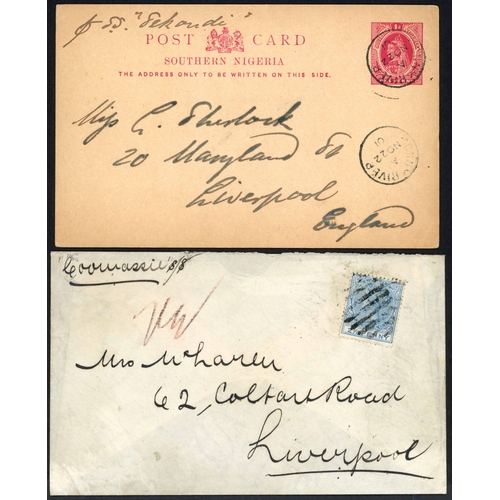 p SS. "Sekondi"
POST CARD
SOUTHERN NIGERIA
THE ADDRESS ONLY TO BE WRITTEN ON THIS SIDE.
Miss G. Sherlock
20 Maryland St
Liverpool
England
RIVER
NO 22
01
Coomassie S/S
Mrs McLaren
62, Coltart Road
Liverpool